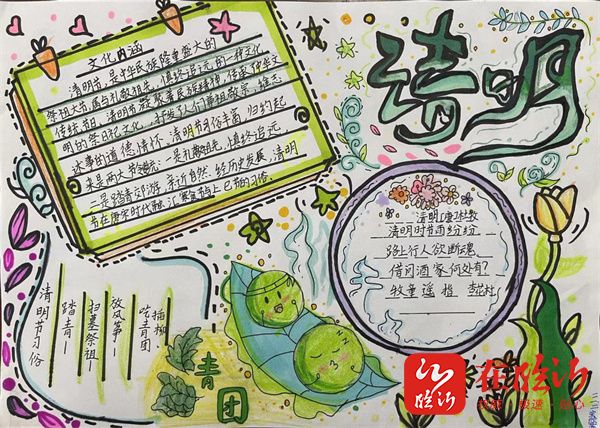 清明
文化内涵
清明节,是中华民族隆重盛大的
祭祖大节,属与礼敬祖先、慎终追远的一种文化
传统节日。清明节凝聚着民族精神,传承
明的祭祀文化,抒发人们尊祖敬宗、继志
述事的道德情怀。清明节习俗丰富,归约起
来是两大节令传统:一是礼敬祖先,慎终追远
二是踏青郊游、亲近自然。经历史发展,清明
节在唐宋时代融汇寒食节与上巳节的习俗。
清明 唐·杜牧
清明时节雨纷纷
路上行人欲断魂
借问酒家何处有?
牧童遥指杏花村
清明节习俗
踏青
扫墓祭祖
放风筝
吃青团
插柳
青团
在临沂